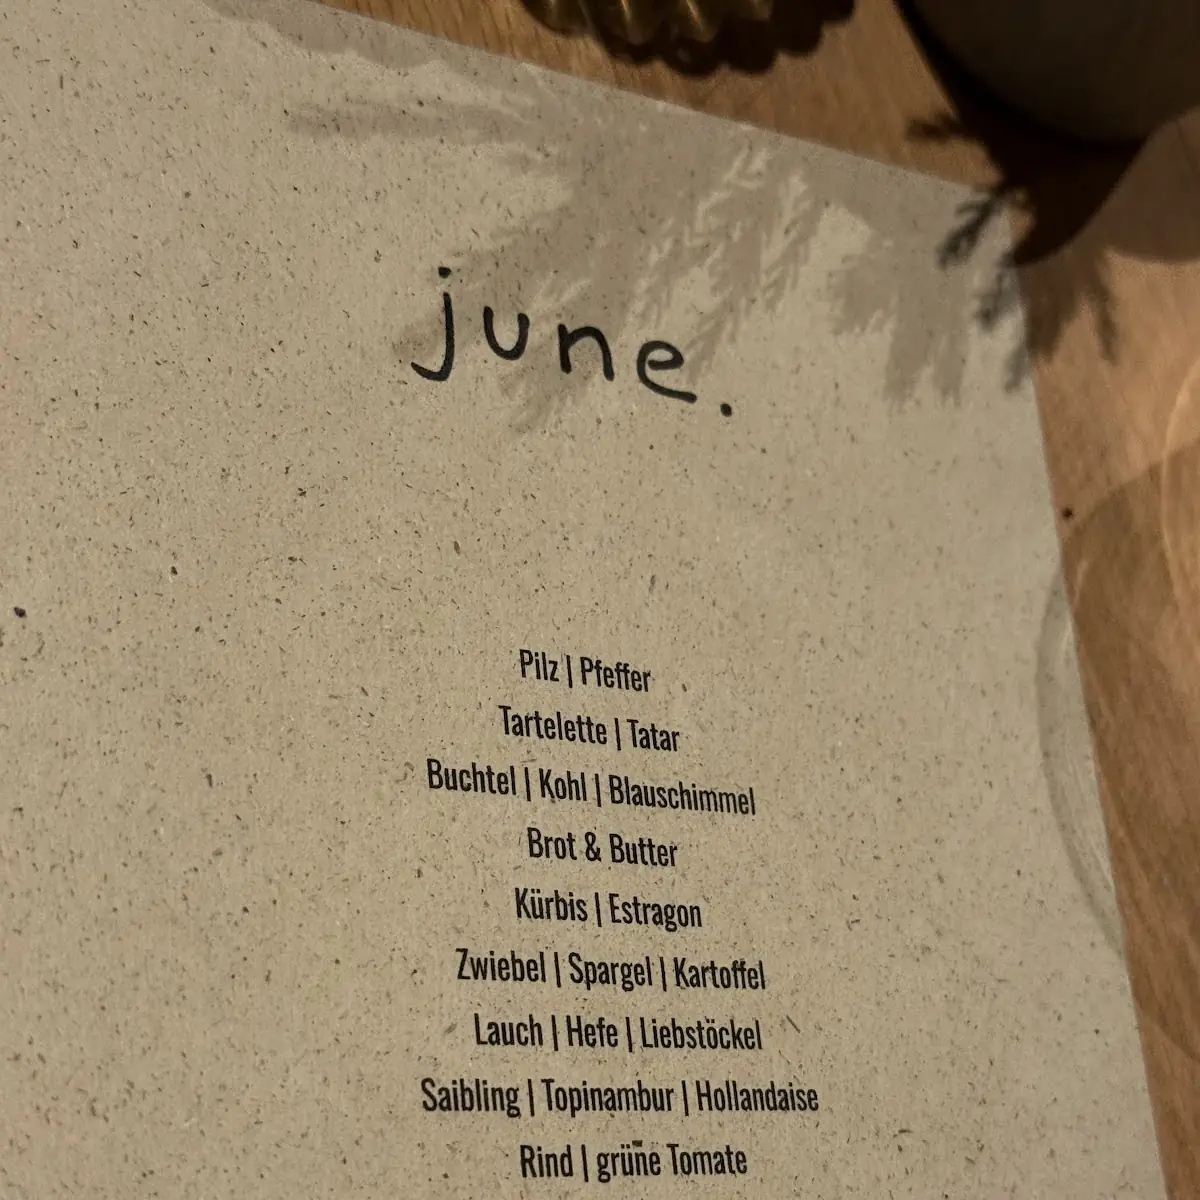 june.
Pilz | Pfeffer
Tartelette | Tatar
Buchtel | Kohl | Blauschimmel
Brot & Butter
Kürbis | Estragon
Zwiebel | Spargel | Kartoffel
Lauch | Hefe | Liebstöckel
Saibling | Topinambur | Hollandaise
Rind | grüne Tomate